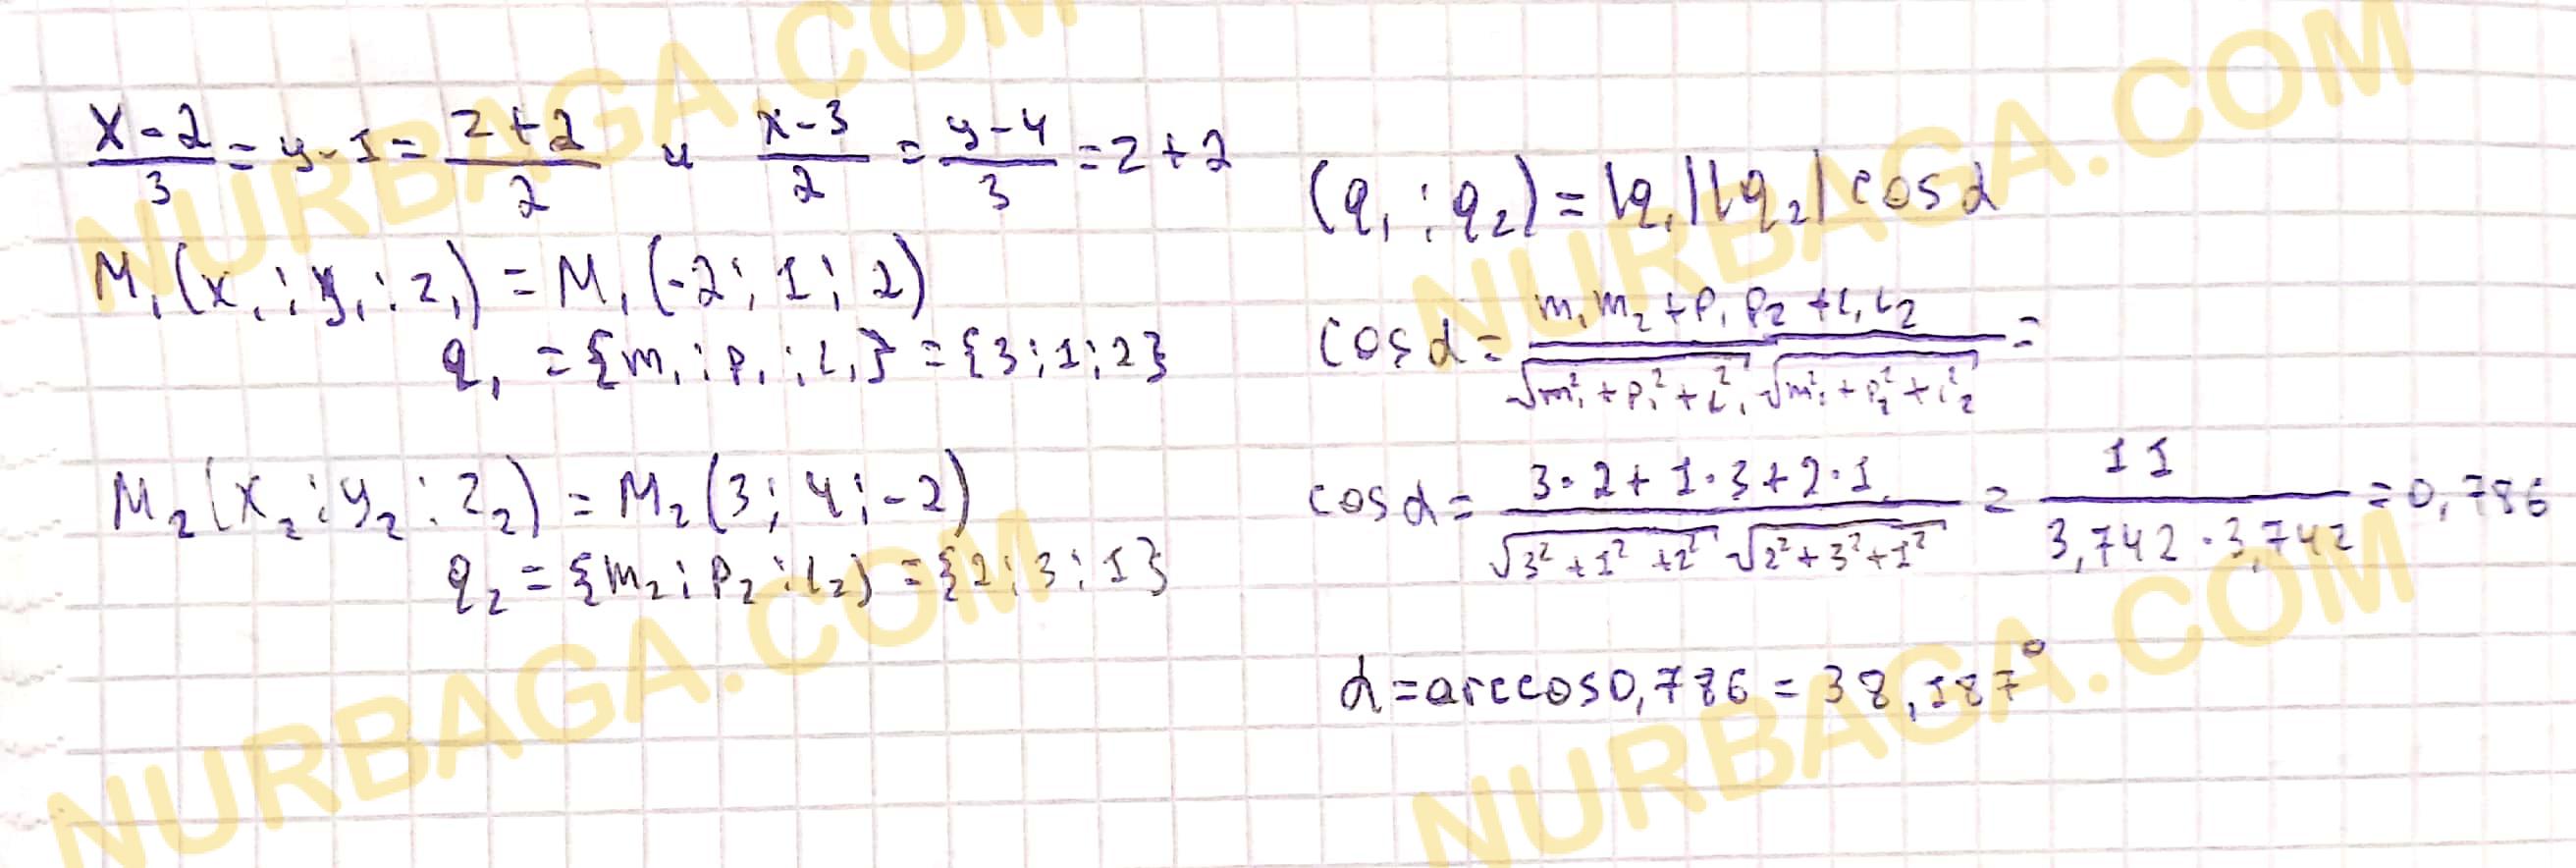 x-2/3 = y-1 = z+2/2 и x-3/2 = y-4/3 = z+2
M₁(x₁; y₁; z₁) = M₁(-2; 1; 2)
q₁ = {m₁; p₁; l₁} = {3; 1; 2}
M₂(x₂; y₂; z₂) = M₂(3; 4; -2)
q₂ = {m₂; p₂; l₂} = {2; 3; 1}
(q₁; q₂) = |q₁||q₂| cos α
cos α = m₁m₂ + p₁p₂ + l₁l₂ / √m₁² + p₁² + l₁² √m₁² + p₂² + l₂² =
cos α = 3·2 + 1·3 + 2·1 / √3² + 1² + 2² √2² + 3² + 1² = 11 / 3,742 · 3,742 = 0,786
α = arccos 0,786 = 38,187°
NURBAGA.COM
NURBAGA.COM
NURBAGA.COM
NURBAGA.COM